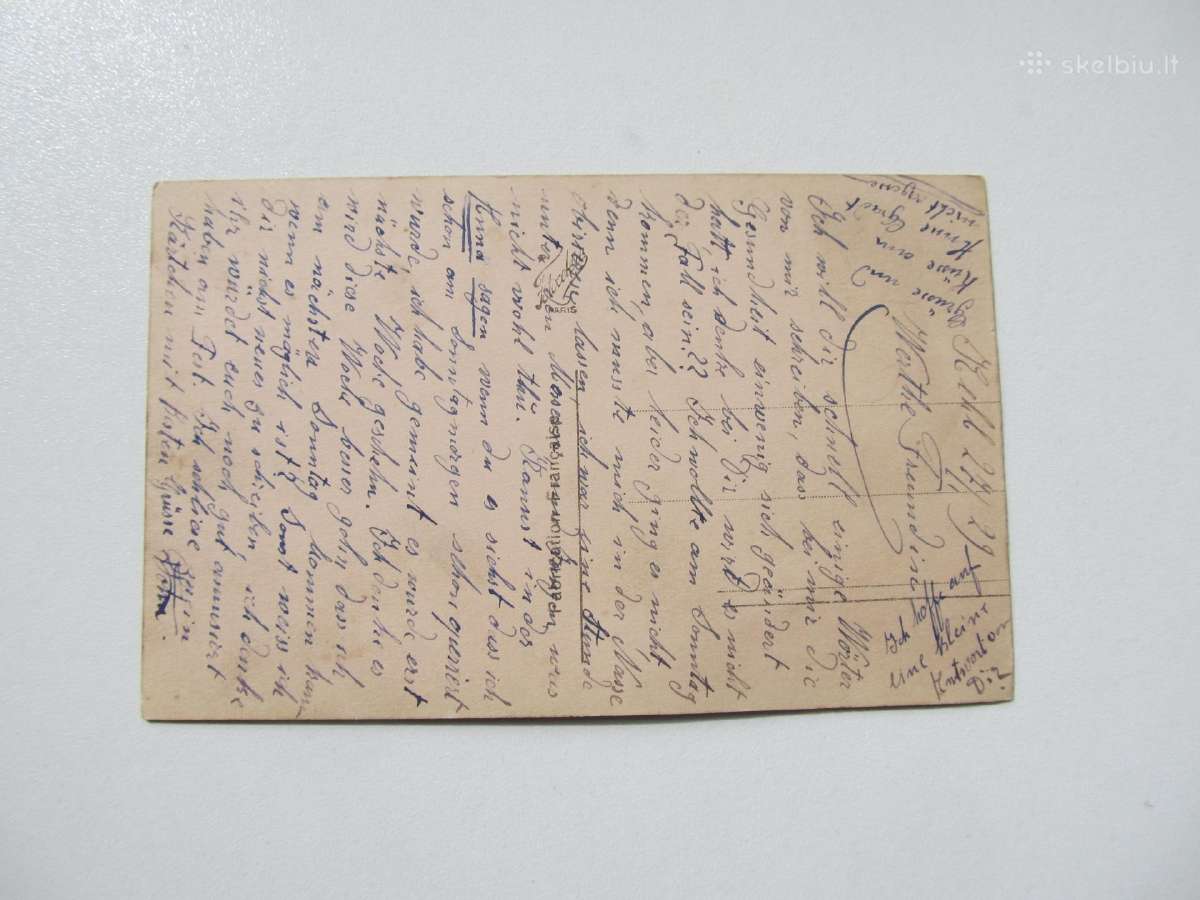 Kehl 27/ 29
Werthe Freundin
Ich will dir schnell einige Wörter
von mir schreiben, dass bei mir die
Gesundheit einwenig sich geändert
hatt ich denke bei Dir wird es nicht
der Fall sein?? Ich wollte am Sonntag
kommen, aber leider ging es nicht
denn ich musste mich in der Masse
lassen ich war eine Stunde
unter den was
nicht wohl thu. Kannst in der
Anna sagen wenn du es siehst dass ich
schon am Sonntagmorgen schon
wurde, ich habe gemeint es wurde erst
nächste Woche geschehn. Ich denke es
wird diese Woche besser gehn dass ich
am nächsten Sonntag kommen kann
wenn es möglich ist? Sonst weiss ich
dir nichts neues zu schreiben, ich denke
ihr würdet euch noch gut amusiert
haben am Fest. Ich schliese mein
Kärtchen mit besten Grüsse
Grüsse und
Küsse an
Anne
nicht
Ich hoffe auf
eine kleine
Antwort von
Dir
PARIS
Fabrication Française
skelbiu.lt